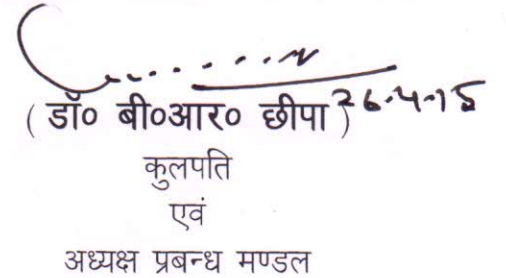 ( डॉ० बी०आर० छीपा ) 26.4.15
कुलपति
एवं
अध्यक्ष प्रबन्ध मण्डल